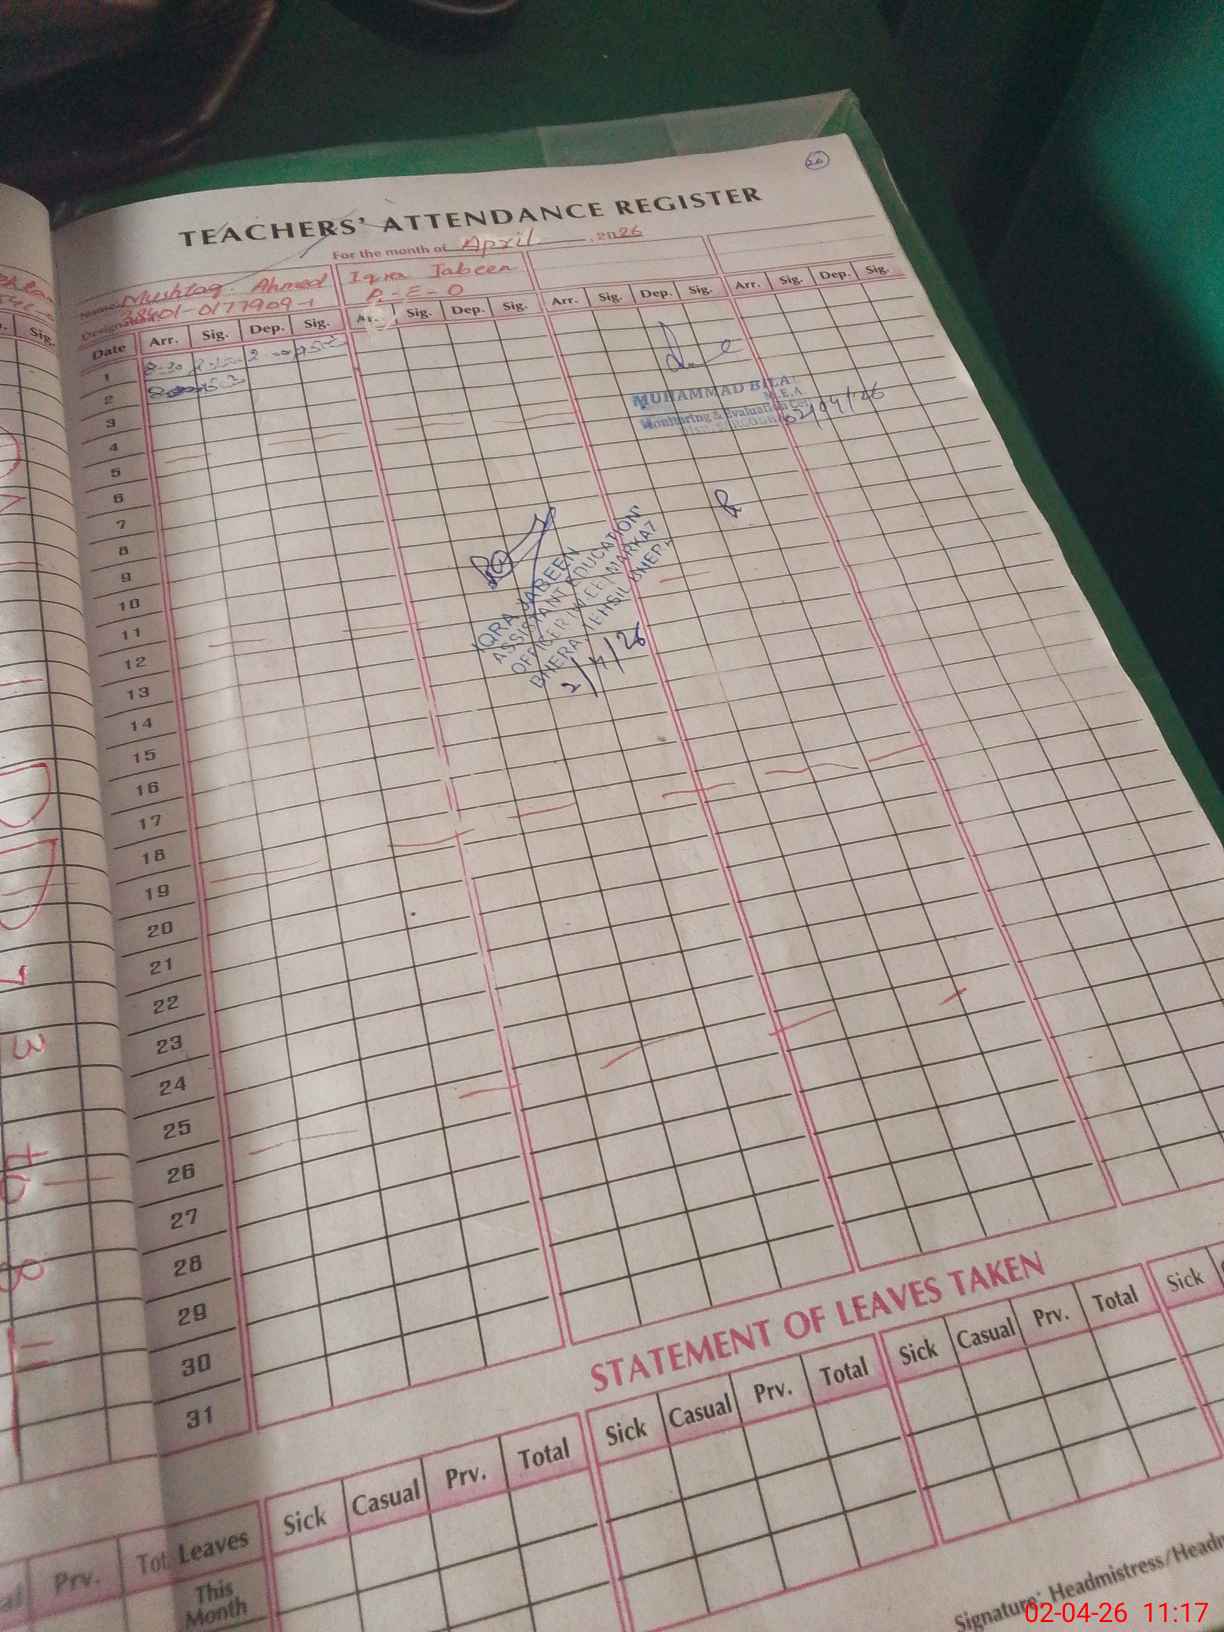 26
TEACHERS' ATTENDANCE REGISTER
For the month of April, 2026
Name Mushtaq Ahmed Iqra Jabeen
38401-0177909-1
Date Arr. Sig. Dep. Sig. Sig. Dep. Sig. Arr. Sig. Dep. Sig. Arr. Sig. Dep. Sig.
1
2
3
4
5
6
7
8
9
10
11
12
13
14
15
16
17
18
19
20
21
22
23
24
25
26
27
28
29
30
31
MUHAMMAD BILAL
M.E.A
Monitoring & Evaluation Cell
02/04/26
IQRA JABEEN
ASSISTANT EDUCATION
OFFICER MARKAZ
BHERA TEHSIL BHERA
2/4/26
STATEMENT OF LEAVES TAKEN
Leaves Sick Casual Prv. Total Sick Casual Prv. Total Sick Casual Prv. Total Sick
This
Month
Prv. Tot
Signature: Headmistress/Headm
02-04-26 11:17